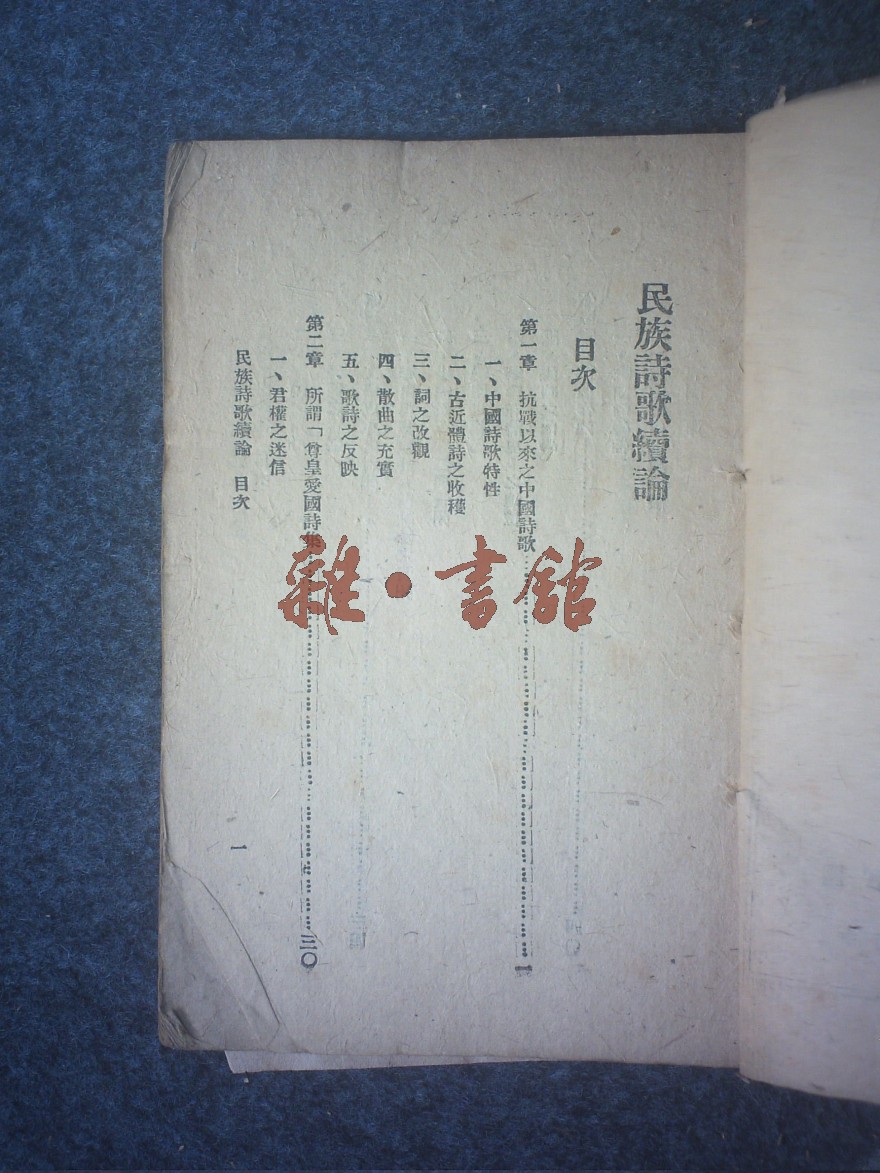 民族詩歌續論
目次
第一章 抗戰以來之中國詩歌……一
一、中國詩歌特性
二、古近體詩之收穫
三、詞之改觀
四、散曲之充實
五、歌詩之反映
第二章 所謂「尊皇愛國詩集……三〇
一、君權之迷信
民族詩歌續論 目次
一
雜·書館